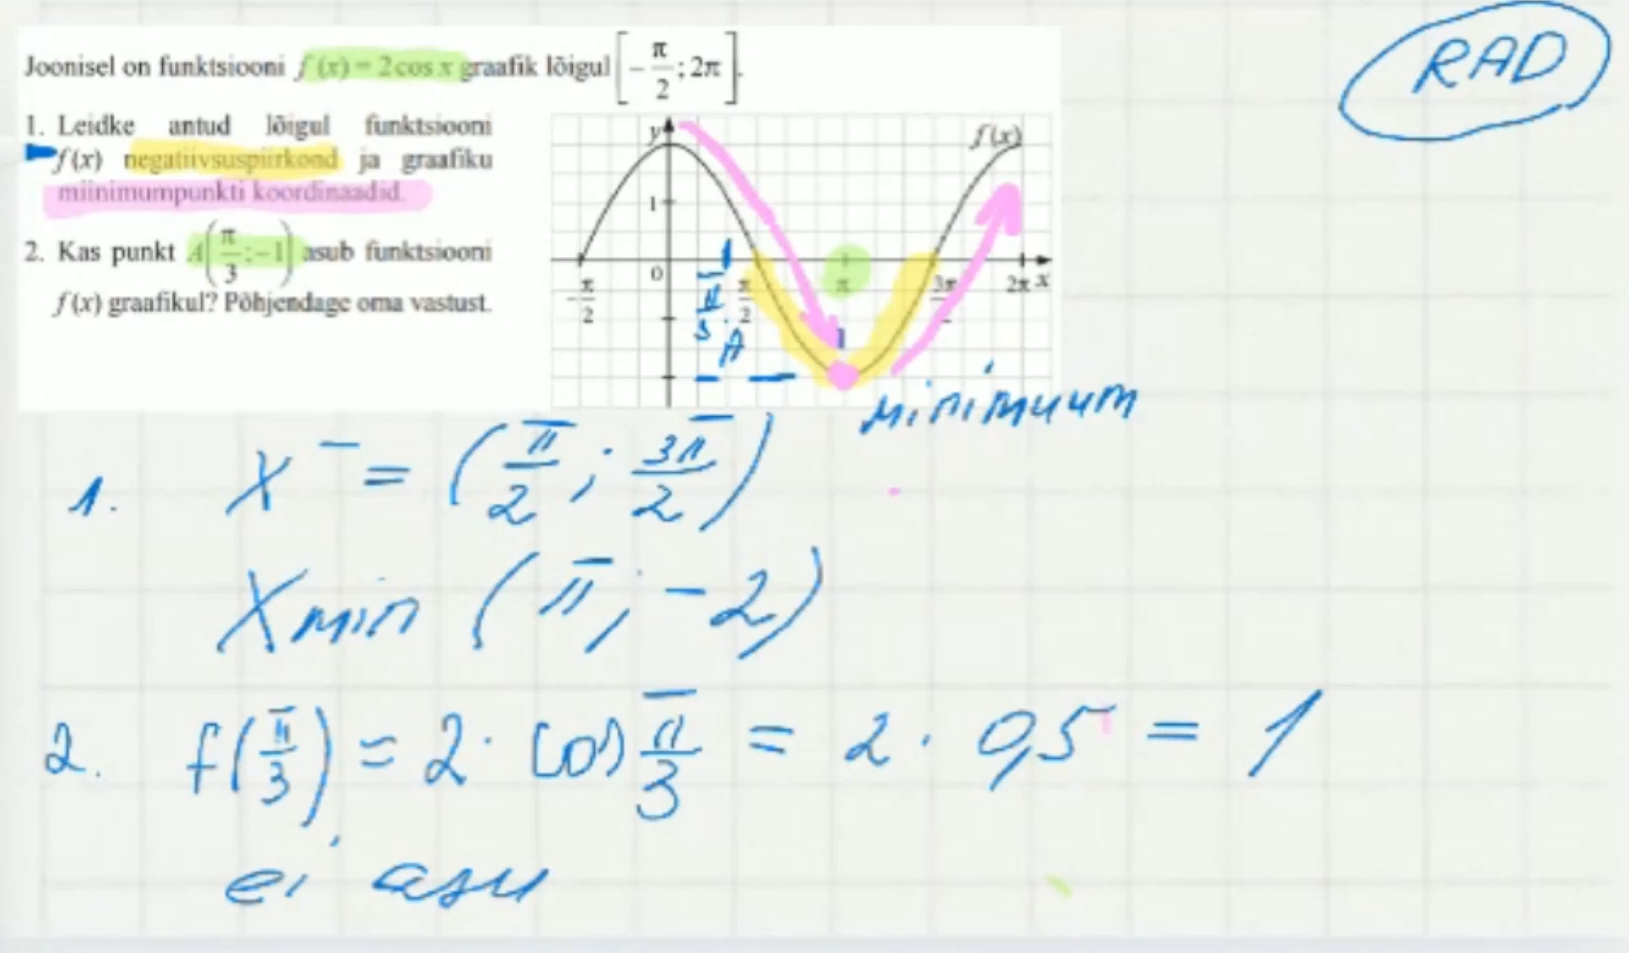 Joonisel on funktsiooni f(x) = 2cos x graafik lõigul [-π/2; 2π].
1. Leidke antud lõigul funktsiooni
f(x) negatiivsuspiirkond ja graafiku
miinimumpunkti koordinaadid.
2. Kas punkt A(π/3; -1) asub funktsiooni
f(x) graafikul? Põhjendage oma vastust.
RAD
y
f(x)
1
0
-π/2
π/3
π/2
π
3π
2π x
A
minimuum
1. X⁻ = (π/2; 3π/2)
Xmin (π; -2)
2. f(π/3) = 2 · cos π/3 = 2 · 0,5 = 1
ei asu